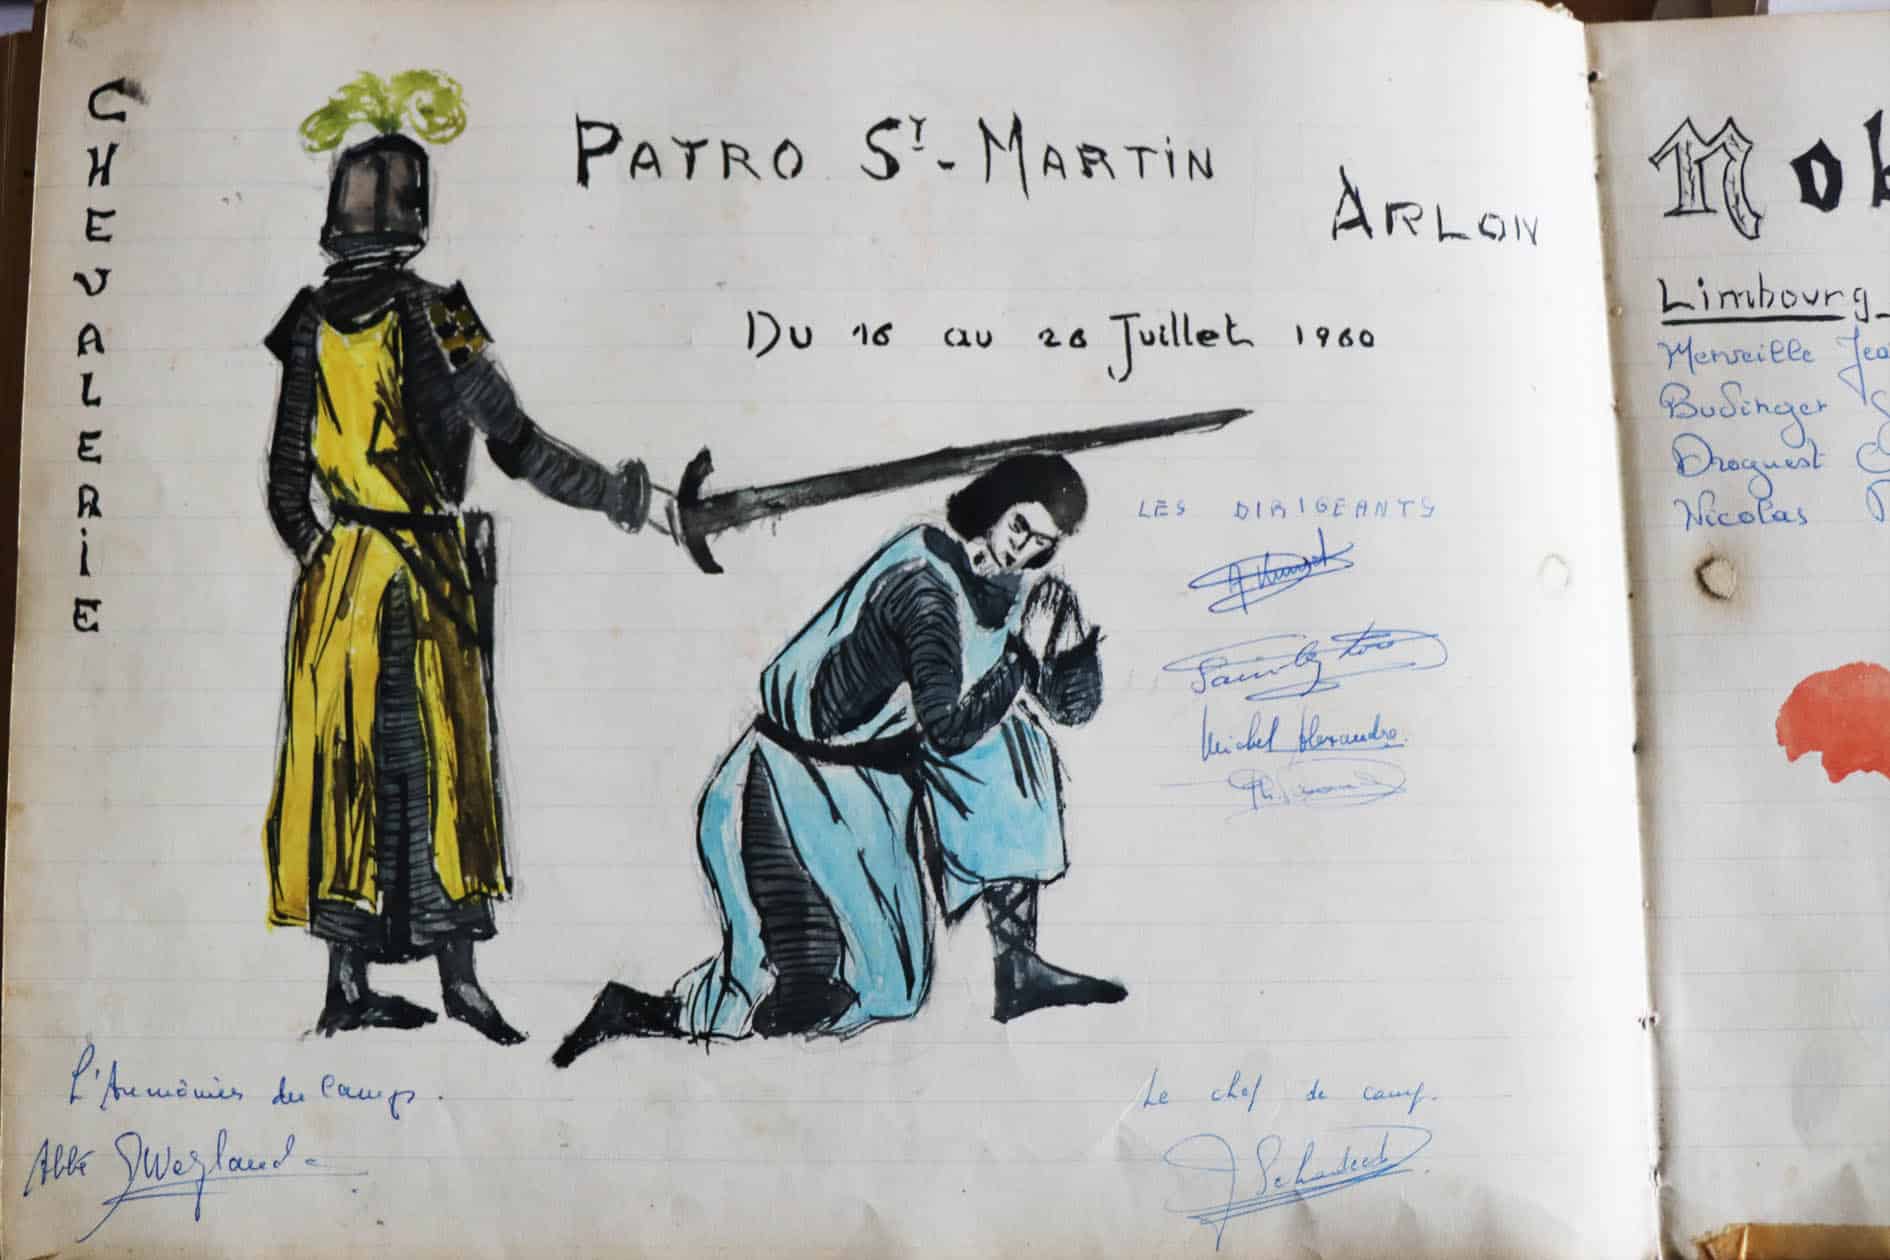 CHEVALERIE
PATRO ST-MARTIN
ARLON
Du 16 au 26 Juillet 1960
LES DIRIGEANTS
Michel Alexandre
L'Aumônier du Camp.
Abbé
Le chef de camp.
Nob
Limbourg
Merveille Jea
Budinger
Droguest
Nicolas